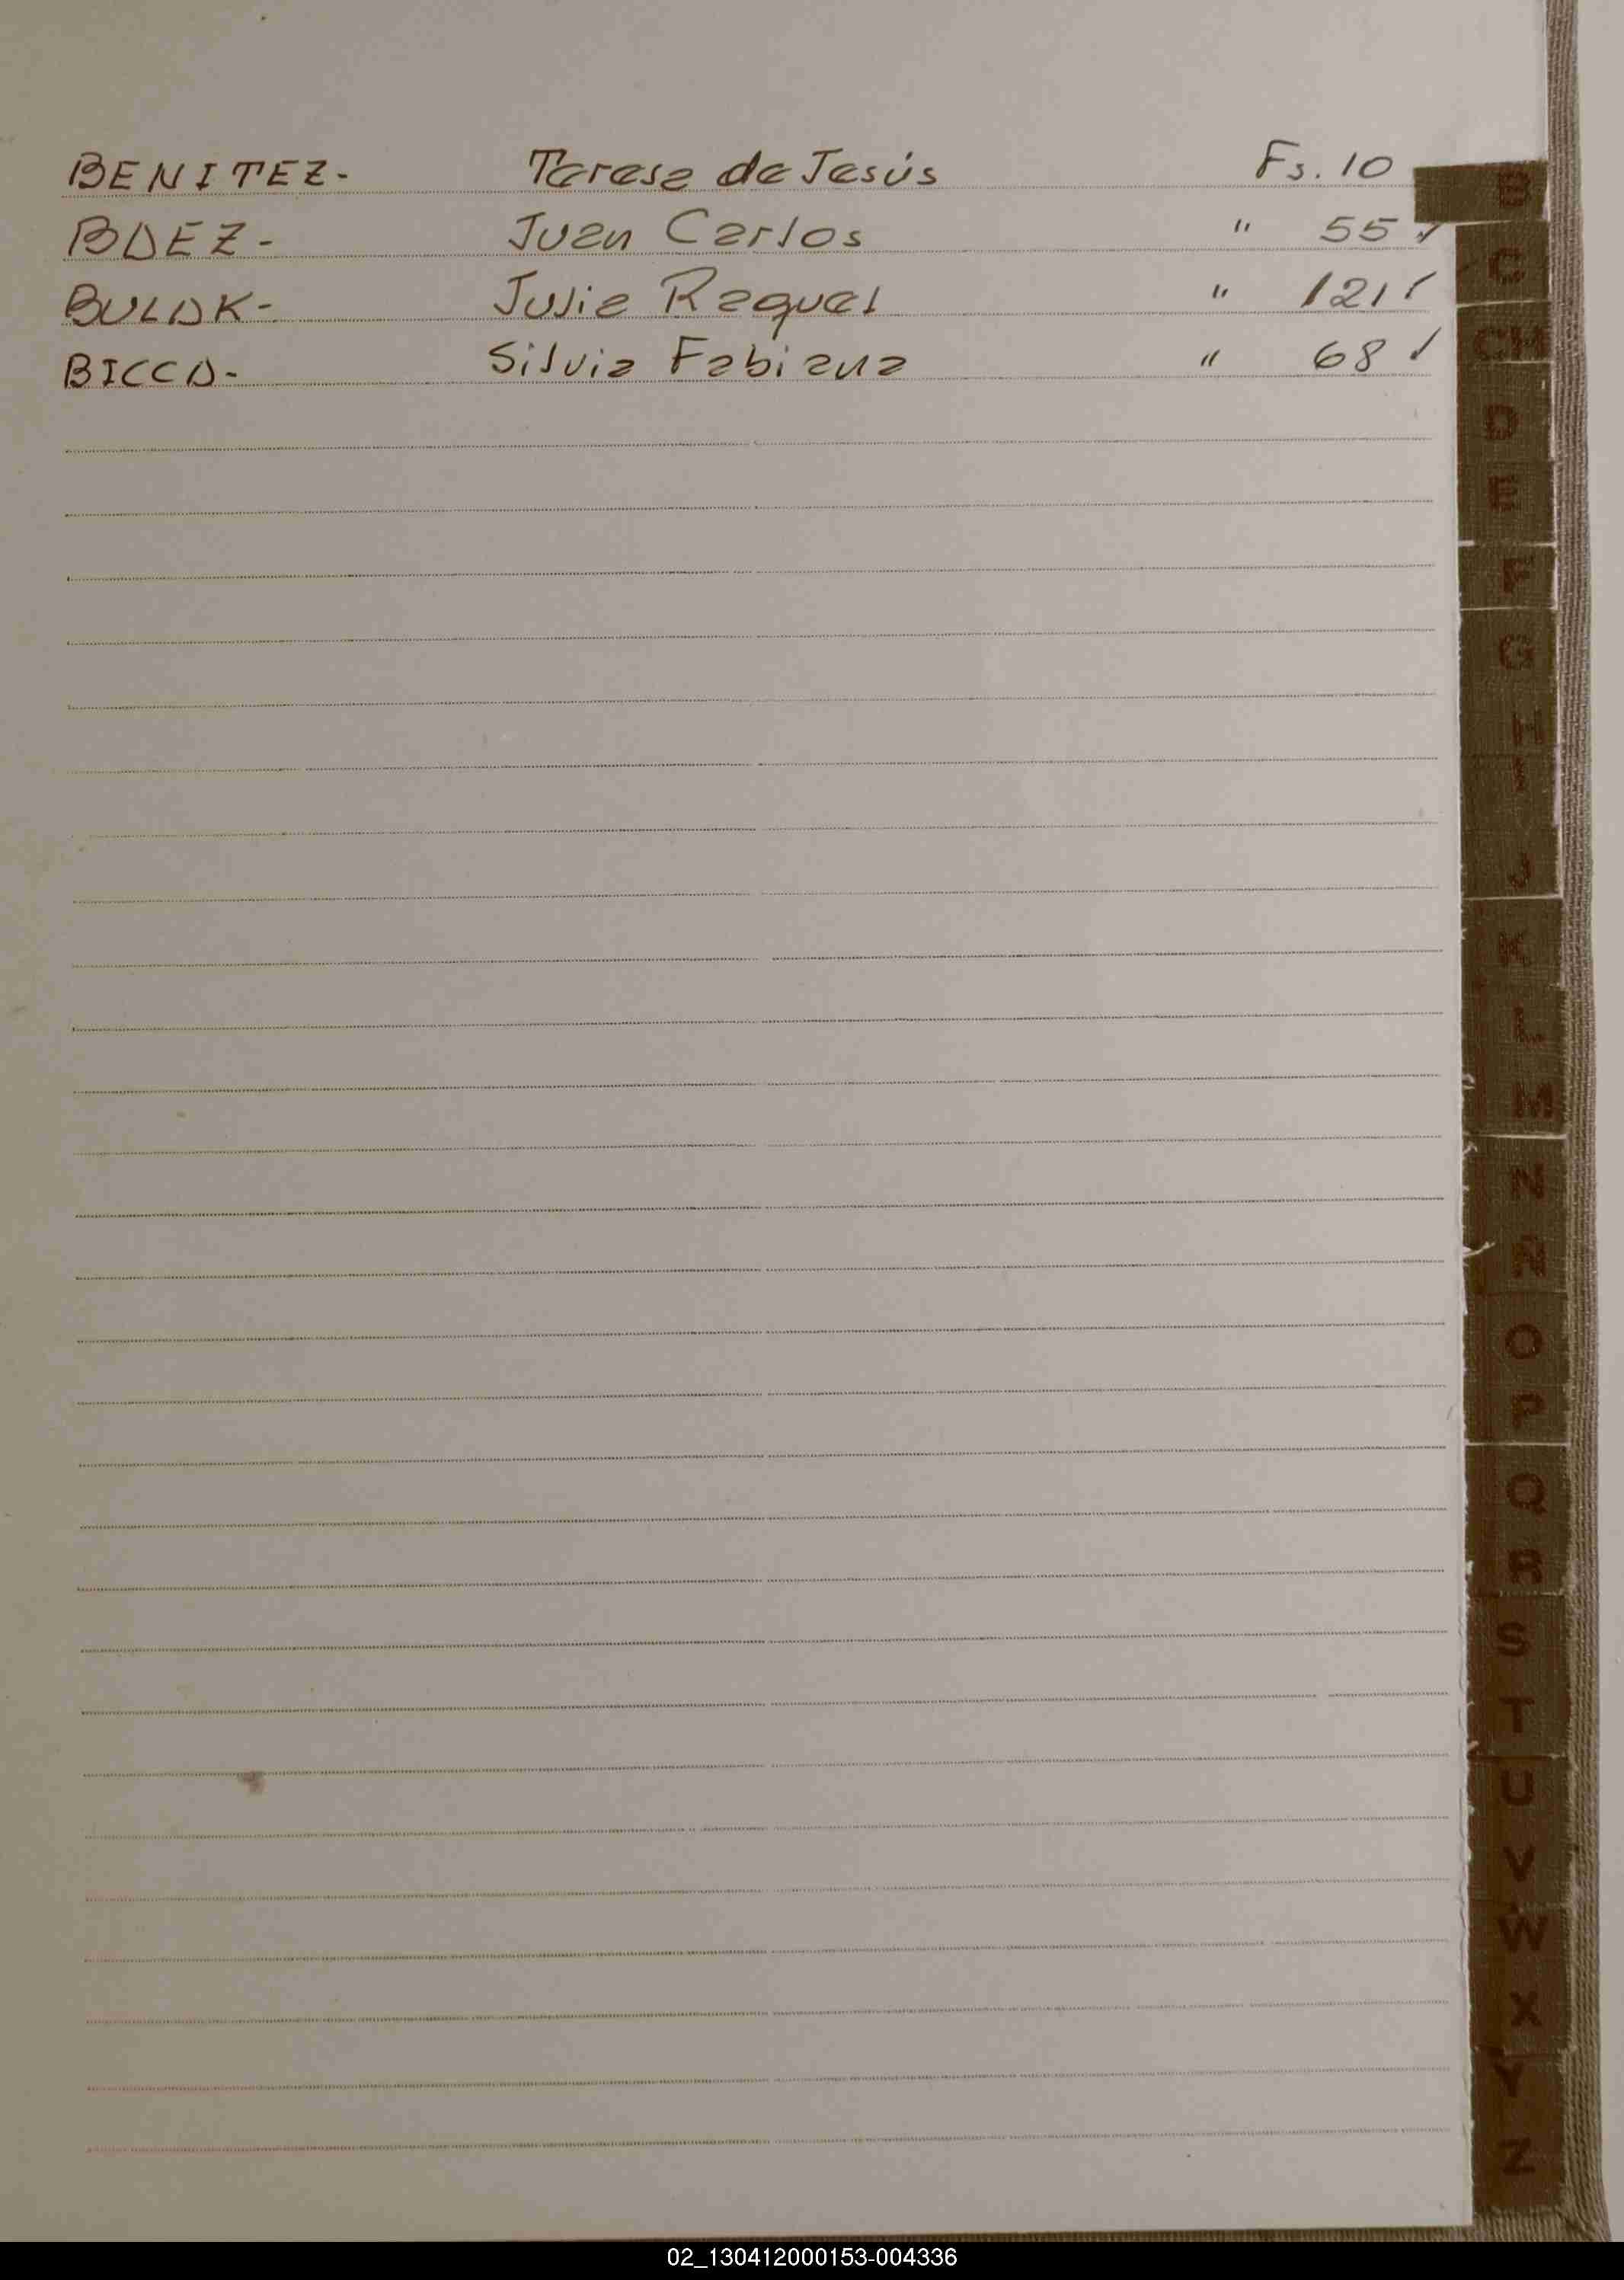 BENITEZ- Teresa de Jesús Fs. 10
BAEZ- Juan Carlos " 55 ✓
BULAK- Julia Raquel " 121 ✓
BICCA- Silvia Fabiana " 68 ✓
B
C
CH
D
E
F
G
H
I
J
K
L
M
N
Ñ
O
P
Q
R
S
T
U
V
W
X
Y
Z
02_130412000153-004336